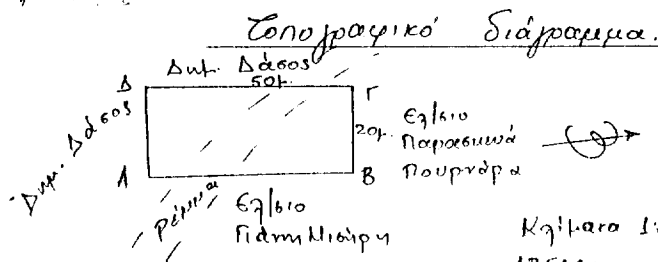 Τοπογραφικό διάγραμμα.
Δημ. Δάσος
Δ 50μ. Γ
Δημ. Δάσος
20μ.
Ελ/σιο
Παρασκευά
Πουρνάρα
Α Β
Ρέμμα
Ελ/σιο
Γιάννη
Κλίμακα 1: